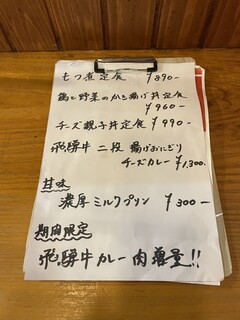 もつ煮定食 ¥890-
鶏と野菜のかき揚げ丼定食
¥960-
チーズ親子丼定食 ¥990-
飛騨牛 二段 揚げおにぎり
チーズカレー ¥1,300.
甘味
濃厚ミルクプリン ¥300-
期間限定
飛騨牛カレー 肉増量!!